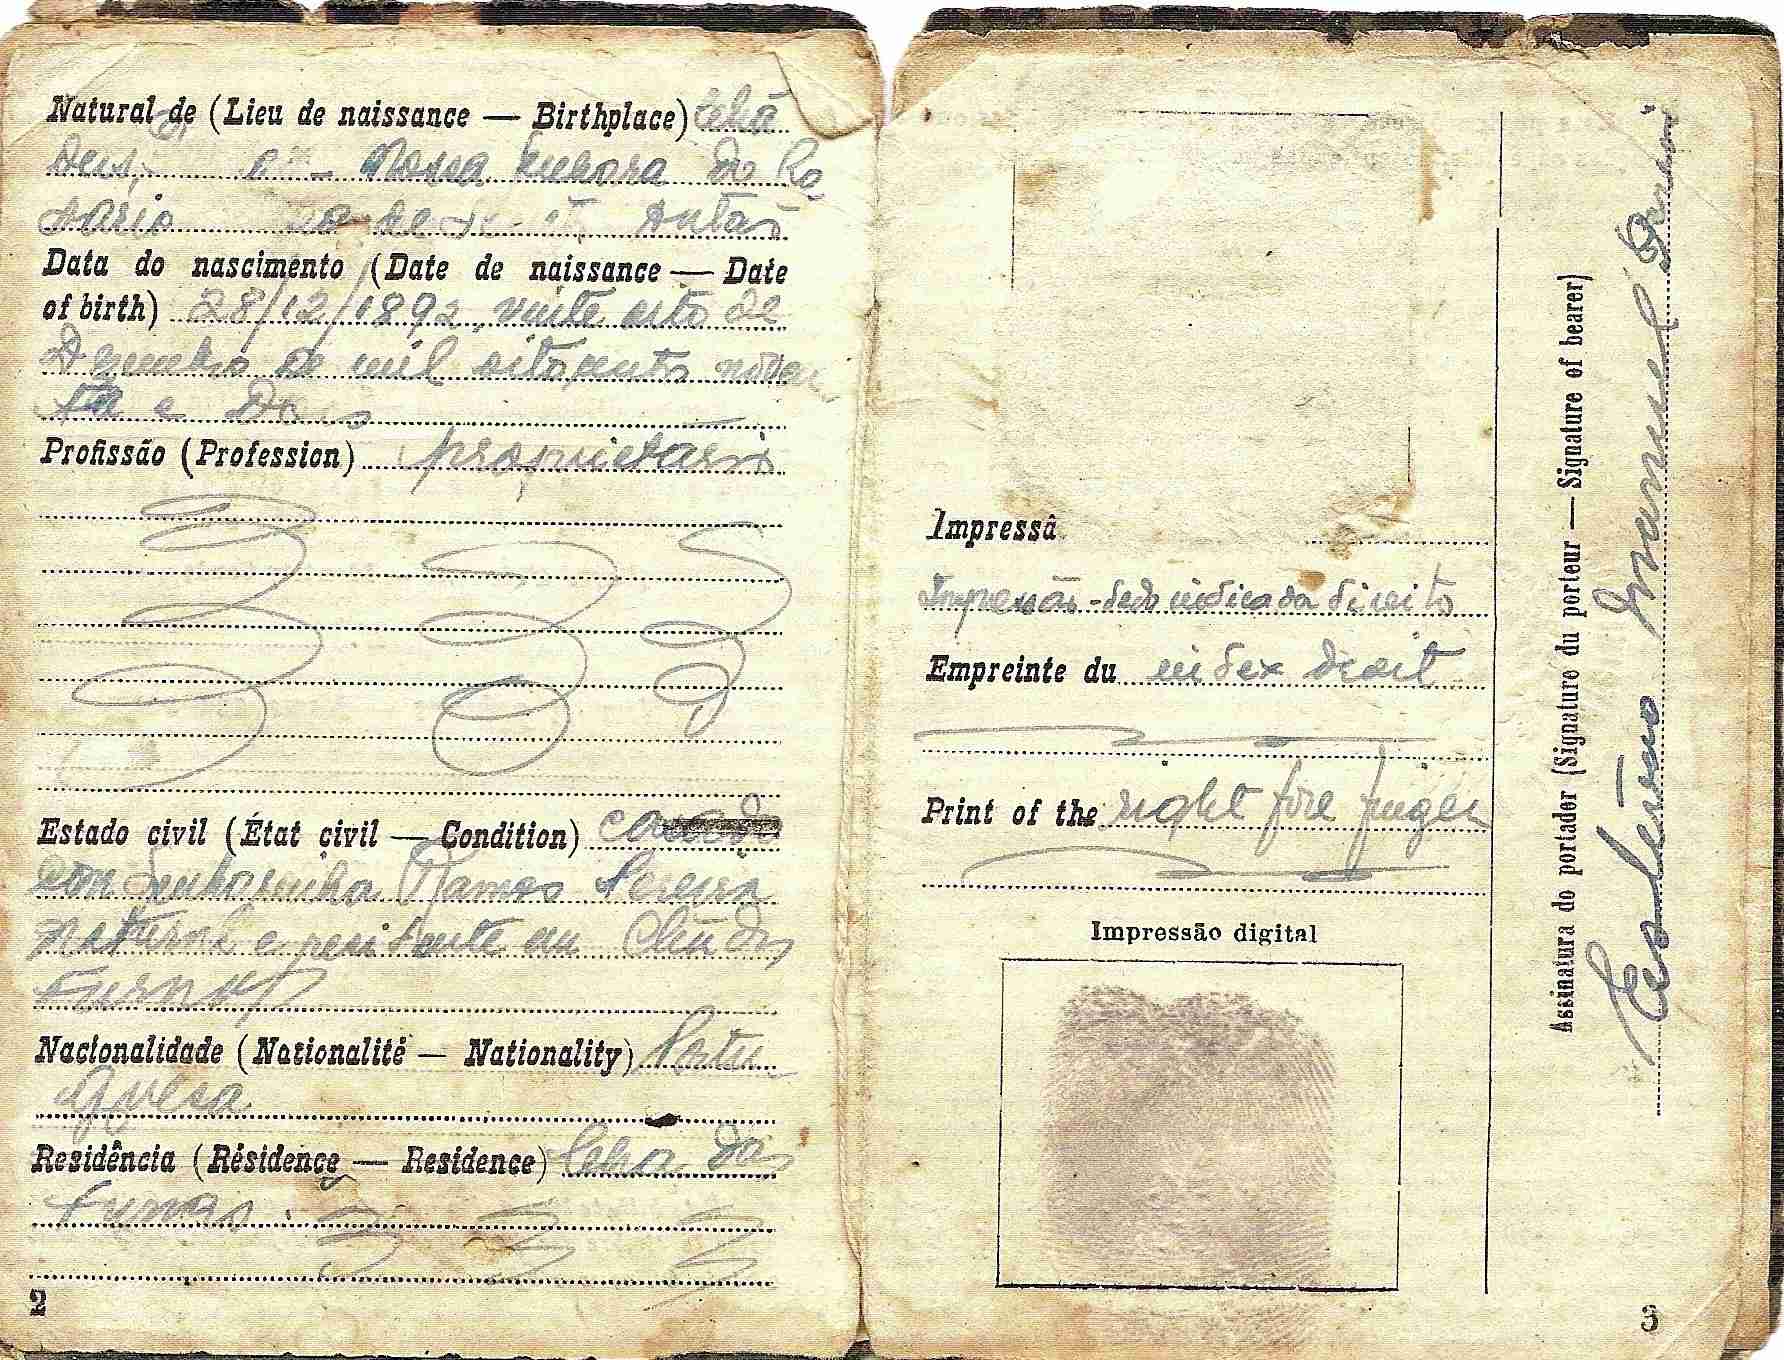 Natural de (Lieu de naissance — Birthplace) Chã
Deus, Nossa Senhora do Ro
sário Antão
Data do nascimento (Date de naissance — Date
of birth) 28/12/1892, vinte oito de
Dezembro de mil oitocentos noven
ta e Dois
Profissão (Profession) proprietário
Estado civil (État civil — Condition) casado
com Senhorinha Ramos Pereira
natural e residente em Chã das
Furnas
Nacionalidade (Nationalité — Nationality) Portu
guesa
Residência (Résidence — Residence) Chã das
Furnas.
2
Impressã
Impressão dedo indicador direito
Empreinte du index droit
Print of the right fore finger
Impressão digital
Assinatura do portador (Signature du porteur — Signature of bearer)
Manuel
3